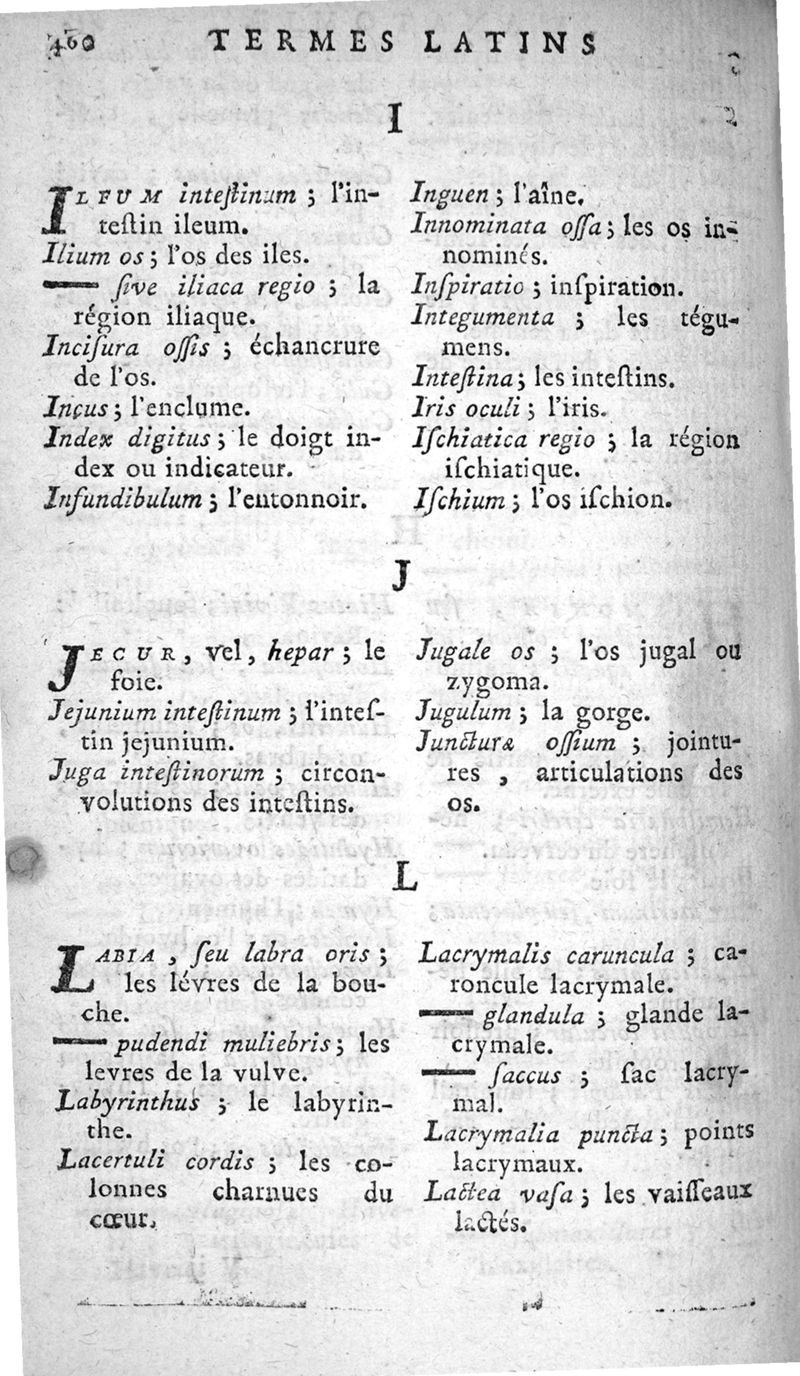 460 TERMES LATINS
I
ILEUM inteſtinum ; l'in-
teſtin ileum.
Ilium os ; l'os des iles.
—— ſive iliaca regio ; la
région iliaque.
Inciſura oſſis ; échancrure
de l'os.
Incus ; l'enclume.
Index digitus ; le doigt in-
dex ou indicateur.
Infundibulum ; l'entonnoir.
Inguen ; l'aîne.
Innominata oſſa ; les os in-
nominés.
Inſpiratio ; inſpiration.
Integumenta ; les tégu-
mens.
Inteſtina ; les inteſtins.
Iris oculi ; l'iris.
Iſchiatica regio ; la région
iſchiatique.
Iſchium ; l'os iſchion.
J
JECUR, vel, hepar ; le
foie.
Jejunium inteſtinum ; l'inteſ-
tin jejunium.
Juga inteſtinorum ; circon-
volutions des inteſtins.
Jugale os ; l'os jugal ou
zygoma.
Jugulum ; la gorge.
Juncturæ oſſium ; jointu-
res , articulations des
os.
L
LABIA , ſeu labra oris ;
les lévres de la bou-
che.
—— pudendi muliebris ; les
levres de la vulve.
Labyrinthus ; le labyrin-
the.
Lacertuli cordis ; les co-
lonnes charnues du
cœur.
Lacrymalis caruncula ; ca-
roncule lacrymale.
—— glandula ; glande la-
crymale.
—— ſaccus ; ſac lacry-
mal.
Lacrymalia puncta ; points
lacrymaux.
Lactea vaſa ; les vaiſſeaux
lactés.